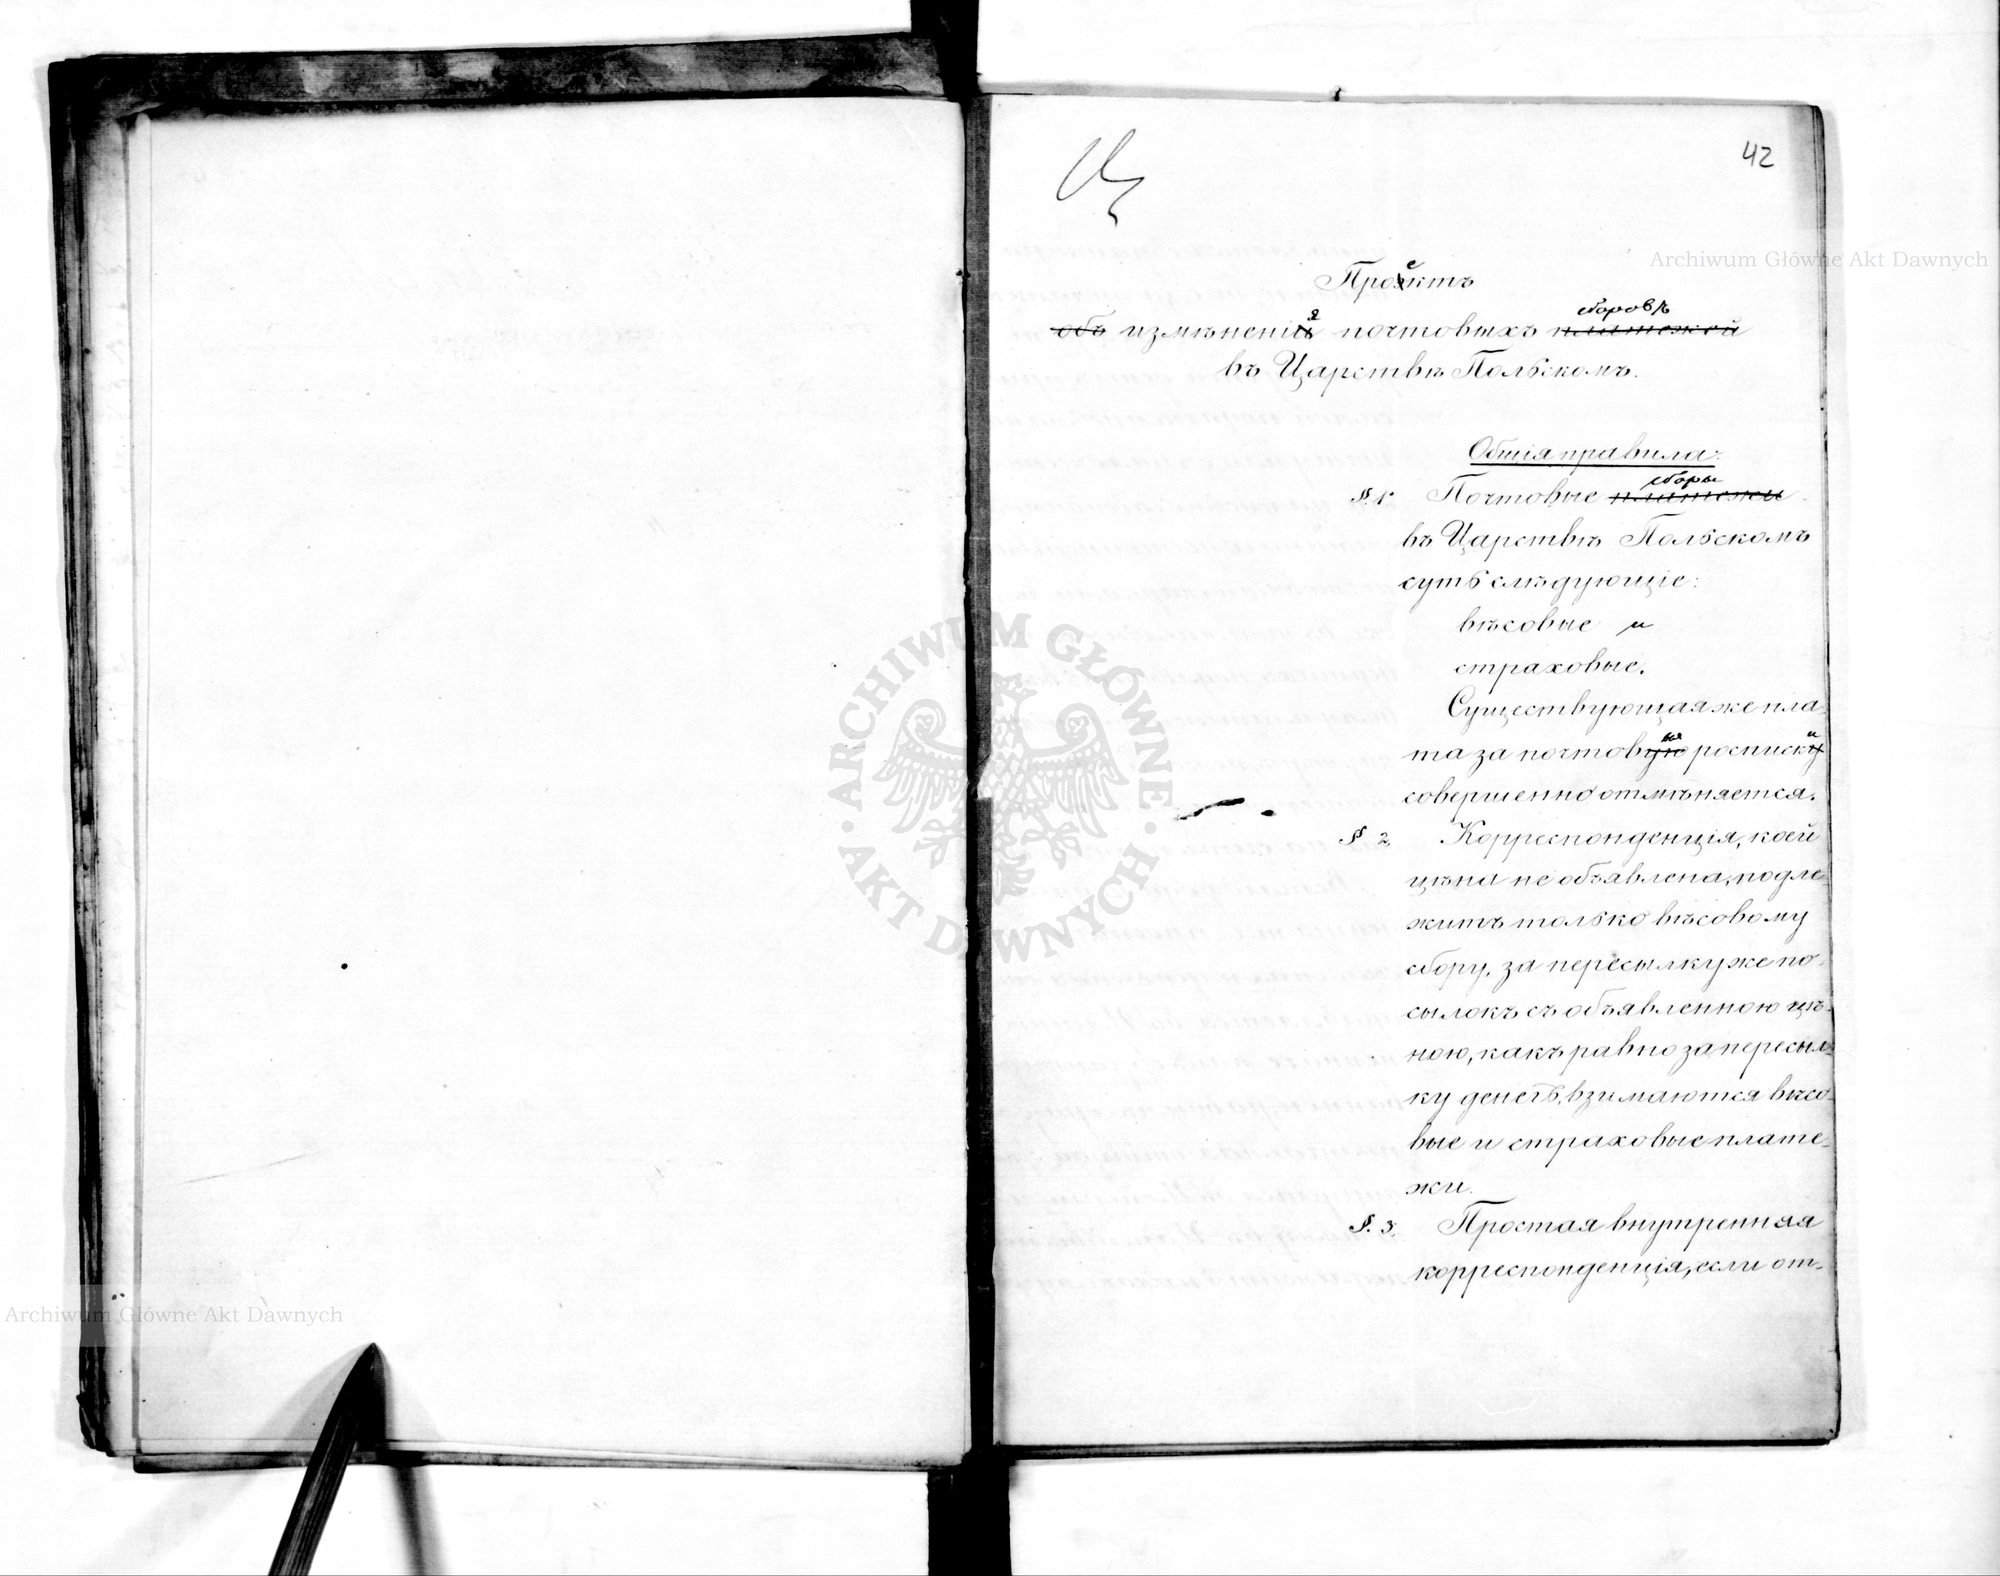 42
Проектъ
~~объ~~ измѣненія почтовыхъ ~~платежей~~ сборовъ
въ Царствѣ Польскомъ.
Общія правила.
§ 1. Почтовые ~~платежи~~ сборы
въ Царствѣ Польскомъ
суть слѣдующіе:
вѣсовые и
страховые.
Существующая же пла-
та за почтовыя росписки
совершенно отмѣняется.
§ 2. Корреспонденція, коей
цѣна не объявлена, подле-
житъ только вѣсовому
сбору, за пересылку же по-
сылокъ съ объявленною цѣ-
ною, какъ равно за пересыл-
ку денегъ, взимаются вѣсо-
вые и страховые плате-
жи.
§. 3. Простая внутренняя
корреспонденція, если от-
Archiwum Główne Akt Dawnych
ARCHIWUM GŁÓWNE AKT DAWNYCH
Archiwum Główne Akt Dawnych